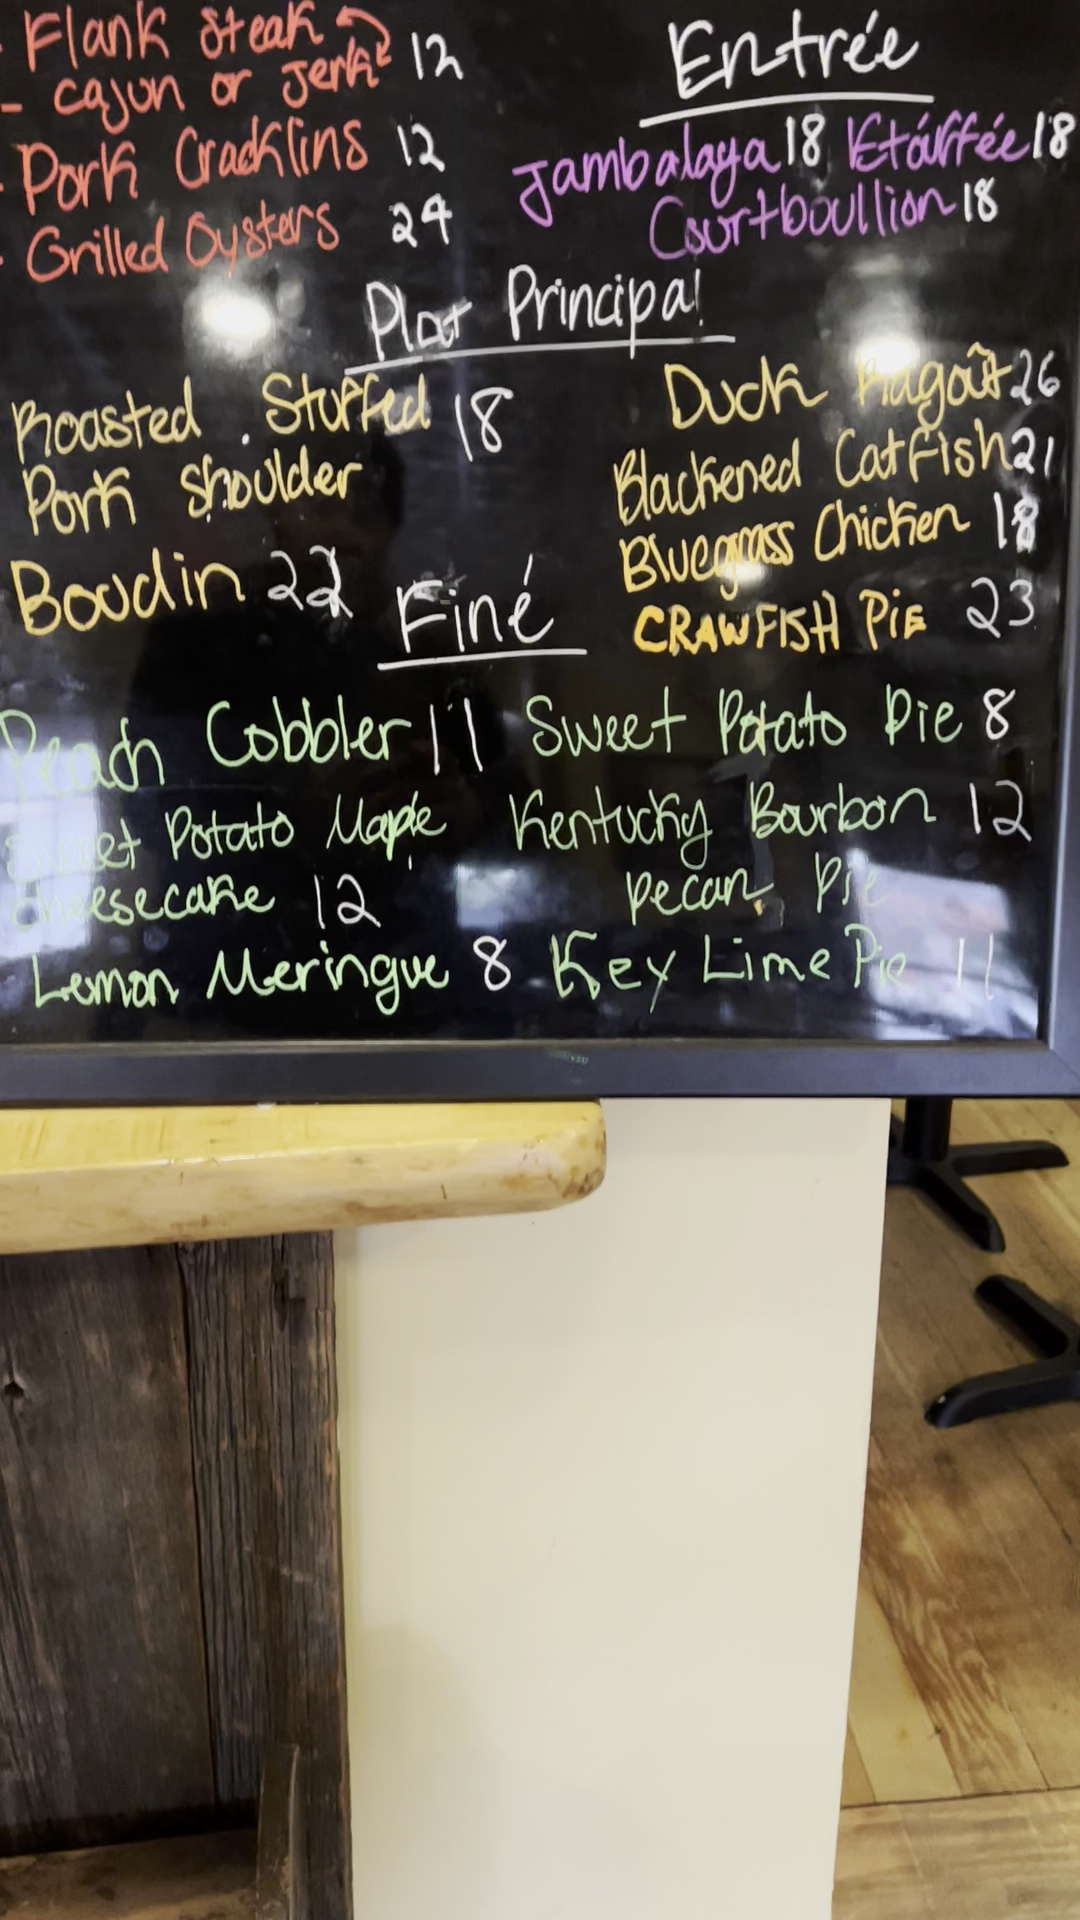 - Flank Steak
- cajun or jerk 12
- Pork Cracklins 12
- Grilled Oysters 24
Entrée
Jambalaya 18 Etáffée 18
Courtboullion 18
Plat Principal
Roasted Stuffed 18
Pork Shoulder
Boudin 22
Duck Ragoût 26
Blackened Catfish 21
Bluegrass Chicken 18
CRAWFISH PiE 23
Finé
Peach Cobbler 11 Sweet Potato Pie 8
Sweet Potato Maple
Cheesecake 12
Kentucky Bourbon 12
Pecan Pie
Lemon Meringue 8 Key Lime Pie 11